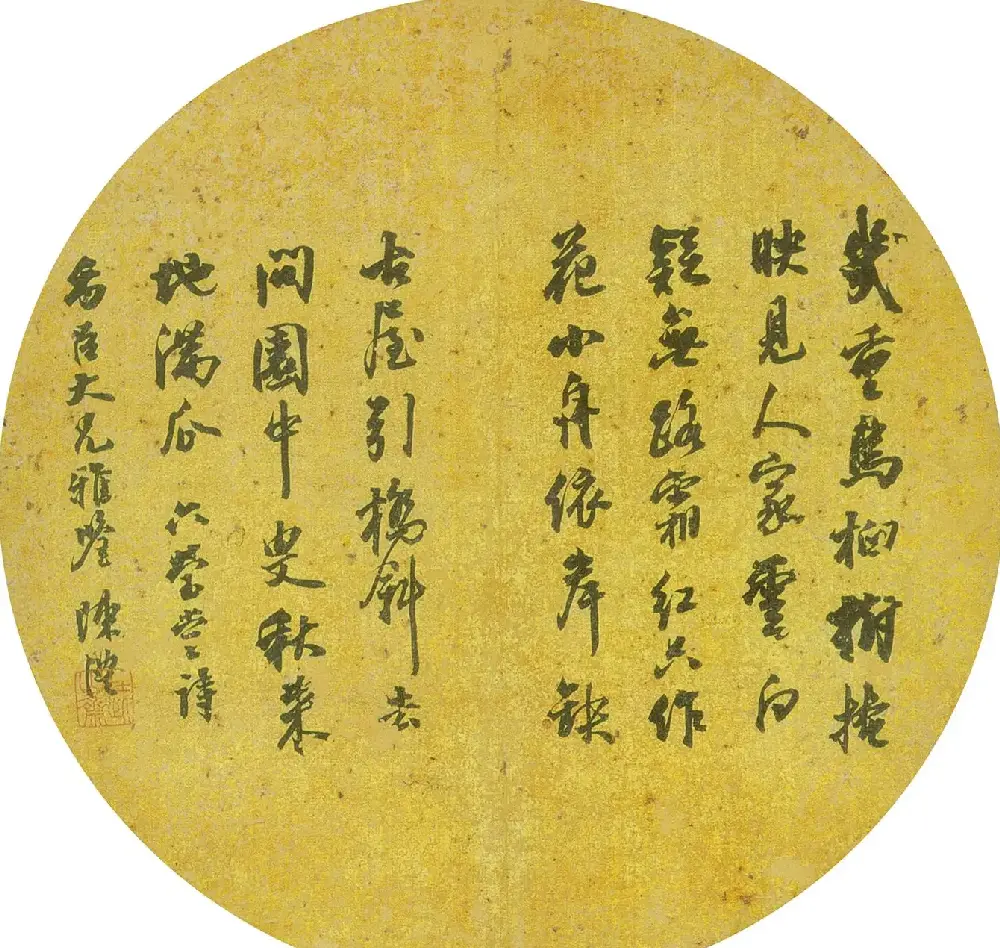 幾重烏桕樹掩
映見人家雲白
疑無路霜紅只作
花小舟依岸缺
古屋引橋斜去
問園中叟秋菜
地滿瓜 六瑩堂詩
大兄雅鑒 陳澧